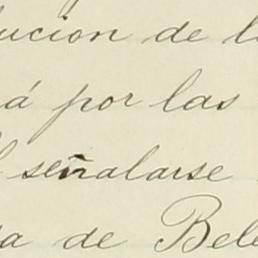 lucion de l
á por las
l señalarse
a de Bele